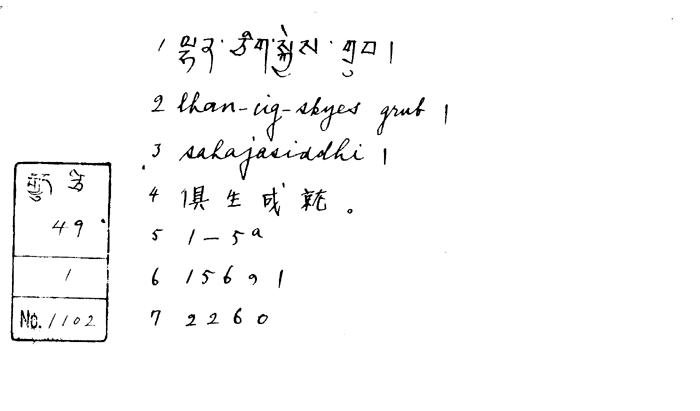 1 ལྷན་ཅིག་སྐྱེས་གྲུབ།
2 lhan-cig-skyes grub |
3 sahajasiddhi |
4 俱生成就。
49
5 1-5a
1
6 15691
No. 1102
7 2260